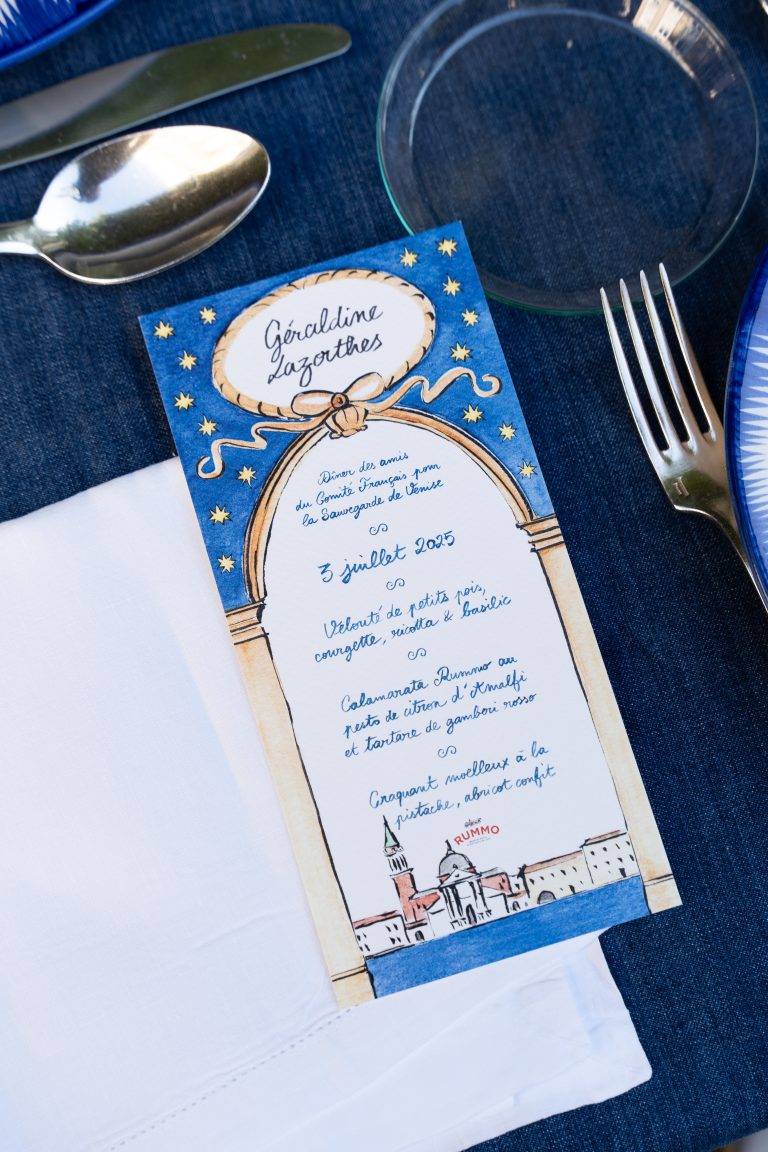 Géraldine
Lazorthes
Dîner des amis
du Comité Français pour
la Sauvegarde de Venise
3 juillet 2025
Velouté de petits pois,
courgette, ricotta & basilic
Calamarata Rummo au
pesto de citron d'Amalfi
et tartare de gambori rosso
Craquant moelleux à la
pistache, abricot confit
RUMMO